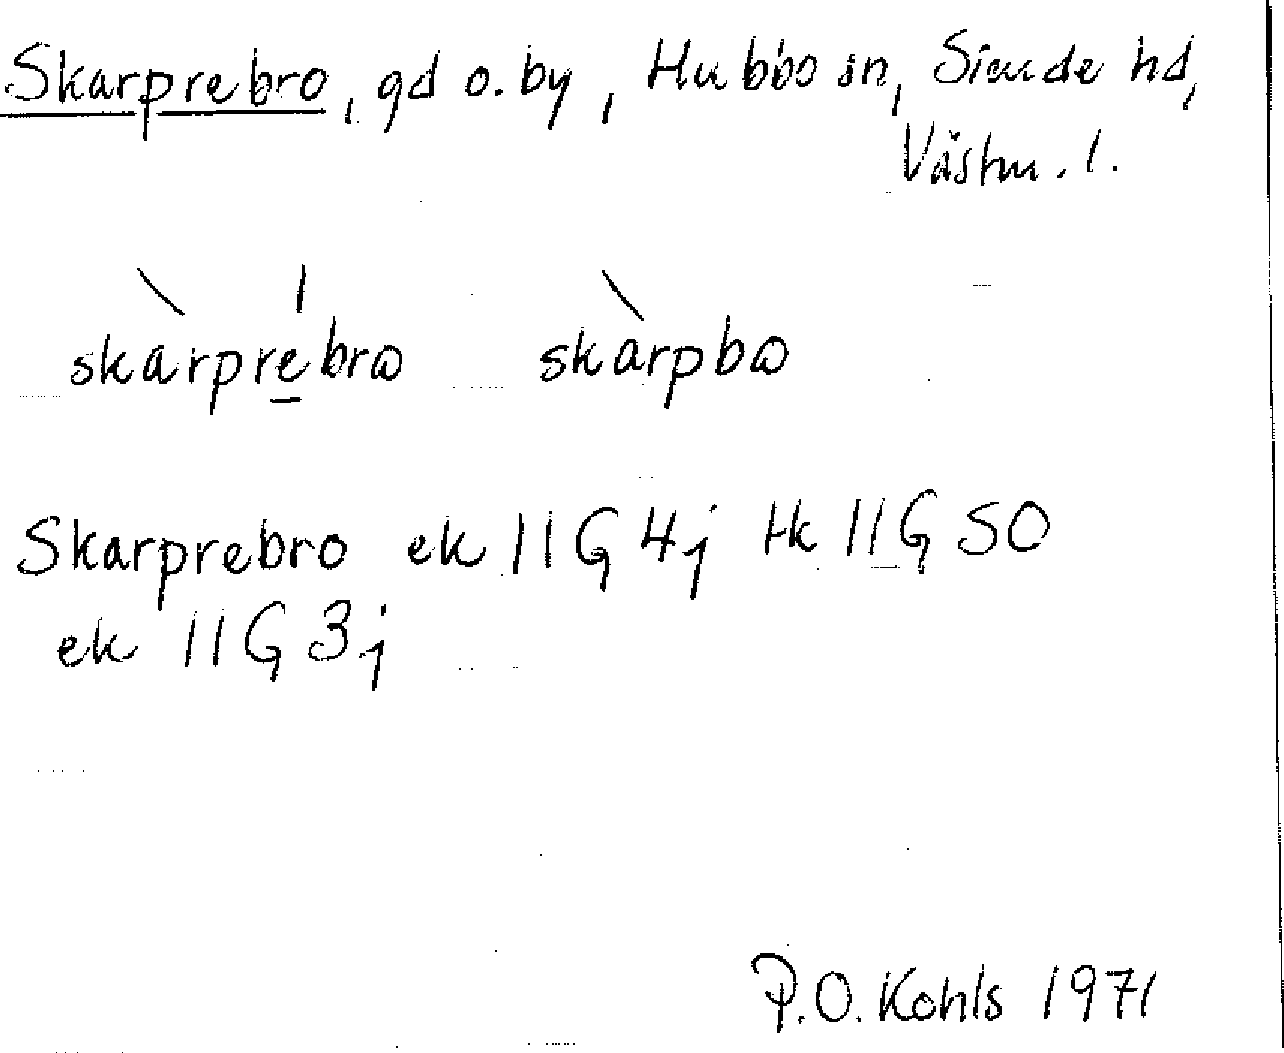 Skarprebro, gd o. by, Hubbo sn, Siende hd,
Västm. l.
skàrpre̲brɷ skàrpbɷ
Skarprebro ek 11G4j tk 11G SO
ek 11G3j
P.O. Kohls 1971